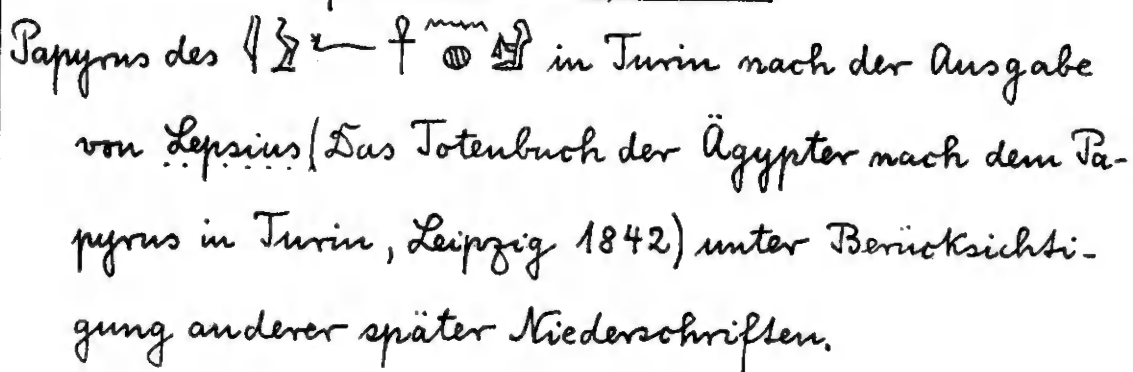 Papyrus des 𓇋𓅱𓆑𓋹𓈖𓐍 in Turin nach der Ausgabe
von Lepsius (Das Totenbuch der Ägypter nach dem Pa-
pyrus in Turin, Leipzig 1842) unter Berücksichti-
gung anderer später Niederschriften.